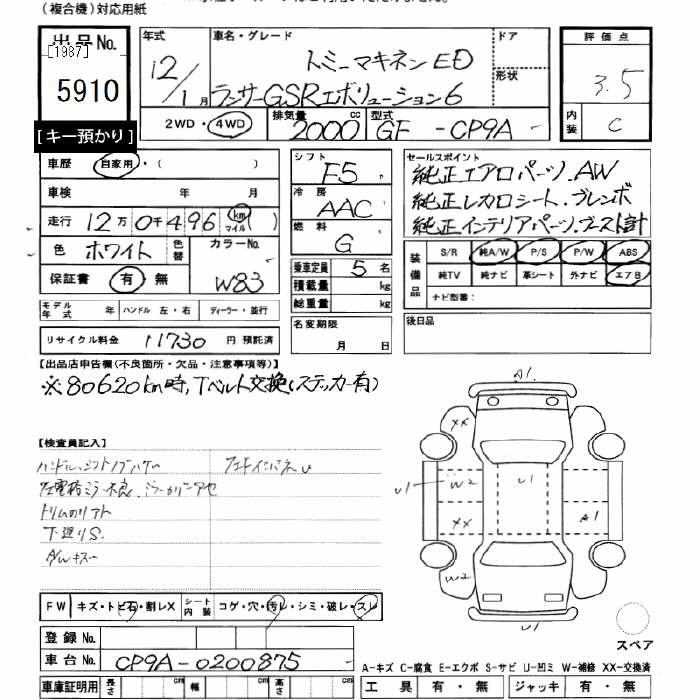 (複合機)対応用紙
出品No.
[1987]
5910
[キー預かり]
年式
12/1月
車名・グレード
トミーマキネンED
ランサーGSRエボリューション6
ドア
形状
評価点
3.5
内装
C
2WD・4WD
排気量
2000 cc
型式
GF - CP9A
車歴
自家用・( )
車検 年 月
走行 12万0千496 km マイル
色 ホワイト
色替
カラーNo.
W83
保証書 有・無
シフト
F5
冷房
AAC
燃料
G
乗車定員 5名
積載量 kg
総重量 kg
名変期限
月 日
セールスポイント
純正エアロパーツ.AW
純正レカロシート.ブレンボ
純正インテリアパーツ.ブースト計
装備品
S/R 純A/W P/S P/W ABS
純TV 純ナビ 革シート 外ナビ エアB
ナビ型番:
後日品
モデル年式 年 ハンドル 左・右 ディーラー・並行
リサイクル料金 11730 円 預託済
【出品店申告欄(不良箇所・欠品・注意事項等)】
※80620km時,Tベルト交換(ステッカー有)
【検査員記入】
トリムのリアト
下廻りS.
A1
XX
U1
W2
U1
XX
A1
W2
U1
FW キズ・トビ石・割レX
シート内装 コゲ・穴・汚レ・シミ・破レ・スレ
登録No.
車台No. CP9A-0200875
スペア
A-キズ C-腐食 E-エクボ S-サビ U-凹ミ W-補修 XX-交換済
車庫証明用 長さ cm 幅 cm 高さ cm
工具 有・無 ジャッキ 有・無